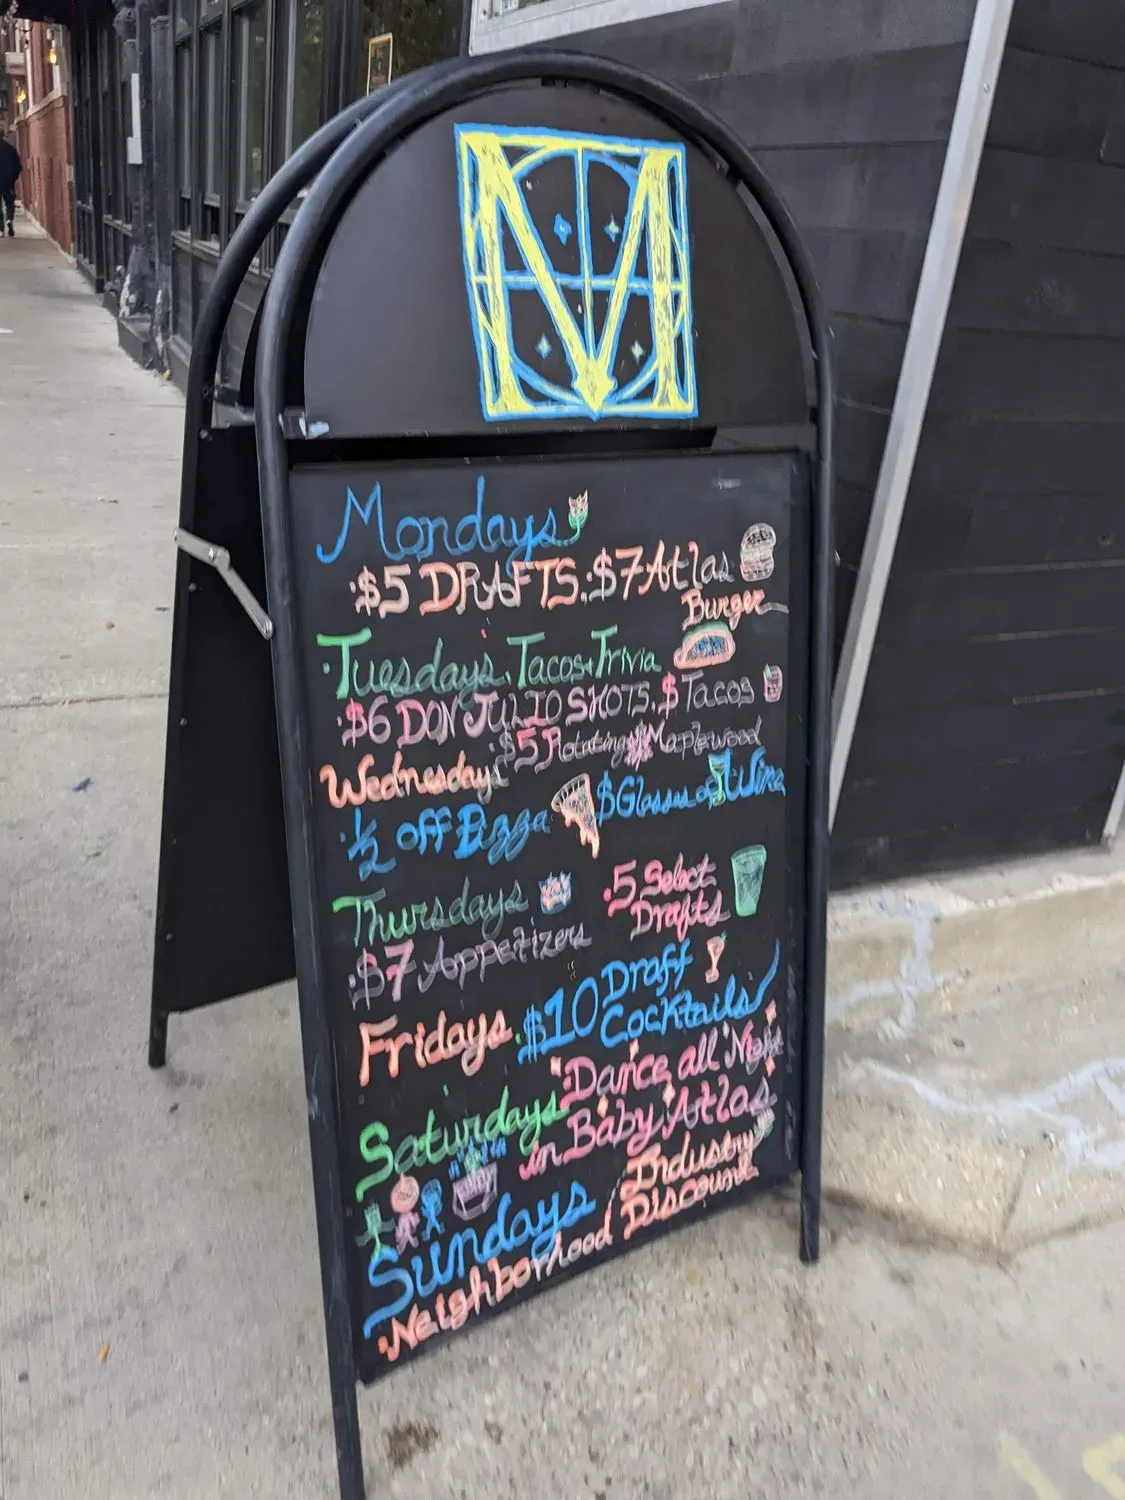 M
Mondays
·$5 DRAFTS.·$7 Atlas
Burger
·Tuesdays. Tacos+Trivia
·$6 DON JULIO SHOTS.$Tacos
$5 Rotating Maplewood
Wednesdays
·½ off Pizza $Glasses of Wine
Thursdays .5 Select
Drafts
$7 Appetizers
Fridays.$10 Draft
Cocktails
Saturdays ·Dance all Night
in Baby Atlas
Sundays Industry
·Neighborhood Discount